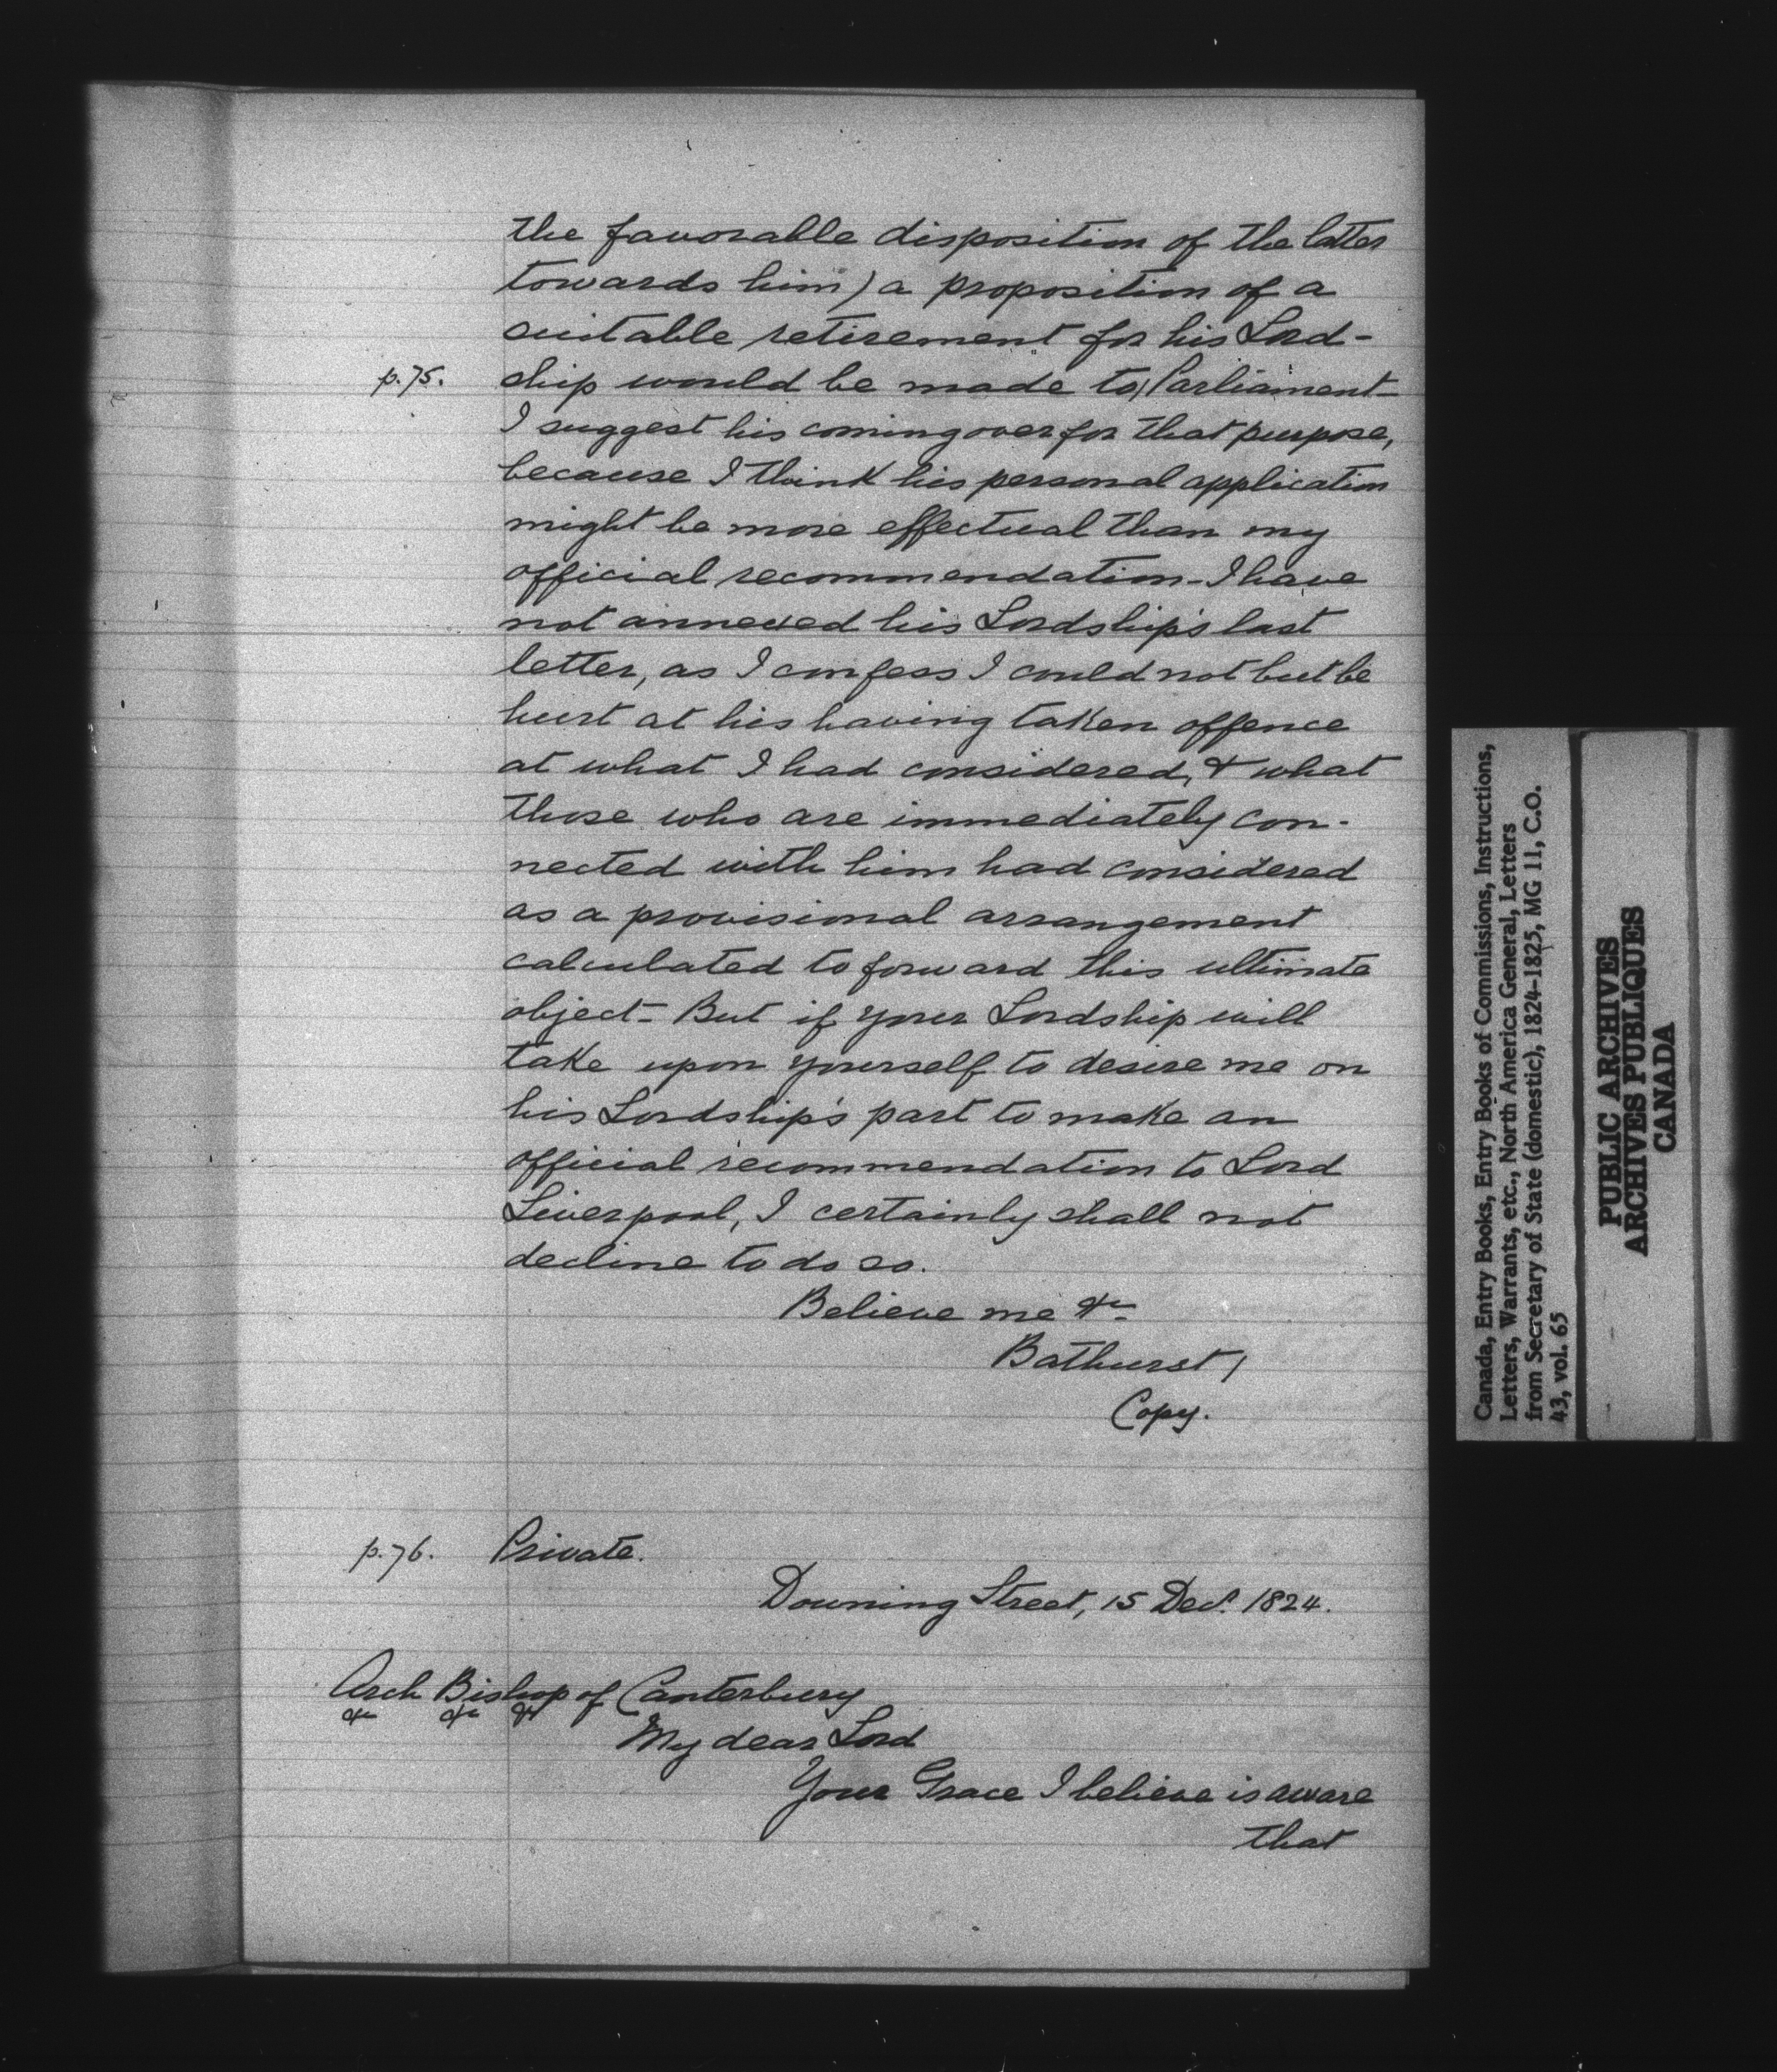 the favorable disposition of the latter
towards him) a proposition of a
suitable retirement for his Lord-
p.75. ship would be made to/Parliament-
I suggest his coming over for that purpose,
because I think his personal application
might be more effectual than my
official recommendation - I have
not annexed his Lordship's last
letter, as I confess I could not but be
hurt at his having taken offence
at what I had considered, & what
those who are immediately con-
nected with him had considered
as a provisional arrangement
calculated to forward this ultimate
object - But if your Lordship will
take upon yourself to desire me on
his Lordship's part to make an
official recommendation to Lord
Liverpool, I certainly shall not
decline to do so.
Believe me &c
Bathurst/
Copy.
p.76. Private.
Downing Street, 15 Decr. 1824.
Arch Bishop of Canterbury
&c &c &c
My dear Lord
Your Grace I believe is aware
that
Canada, Entry Books, Entry Books of Commissions, Instructions,
Letters, Warrants, etc., North America General, Letters
from Secretary of State (domestic), 1824-1825, MG 11, C.O.
43, vol. 65
PUBLIC ARCHIVES
ARCHIVES PUBLIQUES
CANADA